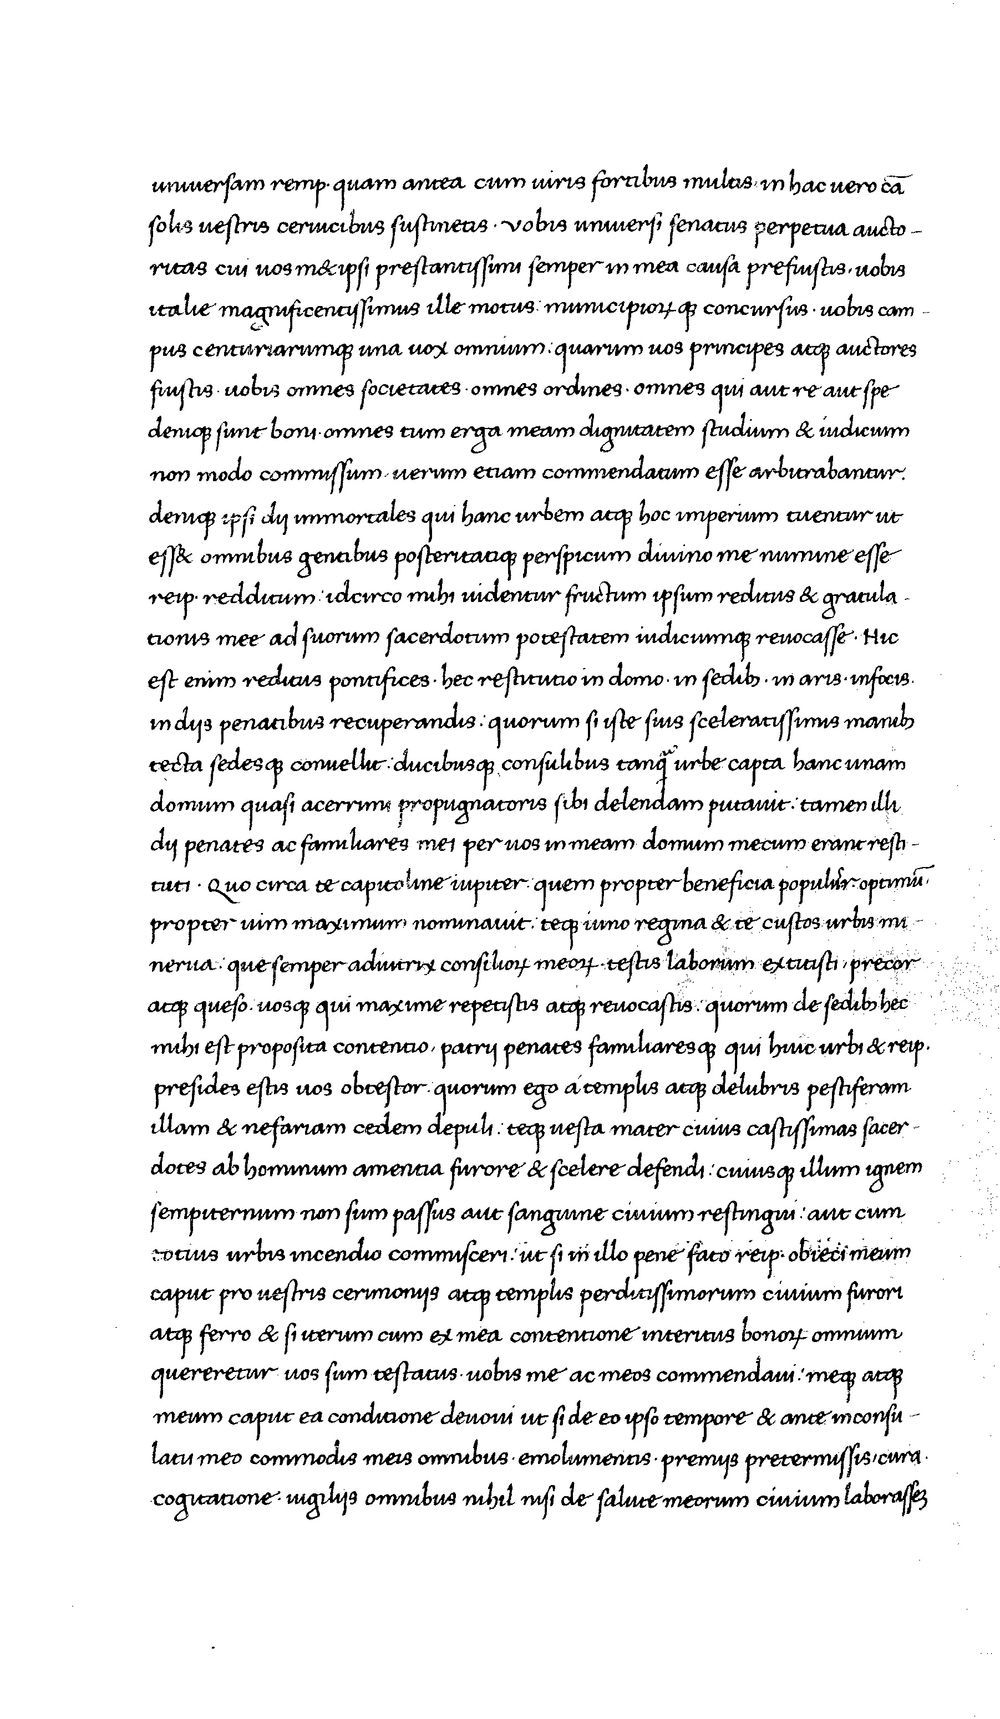 universam remp· quam antea cum uiris fortibus multis· in hac uero cā
solis uestris ceruicibus sustinetis · Vobis universi senatus perpetua aucto-
ritas cui uosm&ipsi prestantissimi semper in mea causa prefuistis· uobis
italie magnificentissimus ille motus: municipioꝝ qꝫ concursus· uobis cam-
pus centuriarumqꝫ una uox omnium: quarum uos principes atqꝫ auctores
fuistis· uobis omnes societates· omnes ordines· omnes qui aut re aut spe
deniqꝫ sunt boni· omnes tum erga meam dignitatem studium & iudicium
non modo commissum· uerum etiam commendatum esse arbitrabantur.
deniqꝫ ipsi dij immortales qui hanc urbem atqꝫ hoc imperium tuentur ut
ess& omnibus gentibus posteritatiqꝫ perspicum diuino me numine esse
reip· redditum: idcirco mihi uidentur fructum ipsum reditus & gratula-
tionis mee ad suorum sacerdotum potestatem iudiciumqꝫ reuocasse· Hic
est enim reditus pontifices· hec restitutio in domo· in sedibꝫ· in aris· infocis·
in dijs penatibus recuperandis: quorum si iste suis sceleratissimis manibꝫ
tecta sedesqꝫ conuellit: ducibusqꝫ consulibus tanqᷓ urbe capta hanc unam
domum quasi acerrimi propugnatoris sibi delendam putauit: tamen illi
dij penates ac familiares mei per uos in meam domum mecum erant resti-
tuti· Quo circa te capitoline iupiter· quem propter beneficia populus r· optimū·
propter uim maximum nominauit: teqꝫ iuno regina & te custos urbis mi-
nerua: que semper adiutrix consilioꝝ meoꝝ· testis laborum extitisti· precor
atqꝫ queso· uosqꝫ qui maxime repetistis atqꝫ reuocastis: quorum de sedibꝫ hec
mihi est proposita contentio· patrij penates familiaresqꝫ qui huic urbi & reip·
presides estis uos obtestor· quorum ego a templis atqꝫ delubris pestiferam
illam & nefariam cedem depuli: teqꝫ uesta mater cuius castissimas sacer-
dotes ab hominum amentia furore & scelere defendi: cuiusqꝫ illum ignem
sempiternum non sum passus aut sanguine ciuium restingui: aut cum
totius urbis incendio commisceri: ut si in illo pene fato reip· obieci meum
caput pro uestris cerimonijs atqꝫ templis perditissimorum ciuium furori
atqꝫ ferro & si iterum cum ex mea contentione interitus bonoꝝ omnium
quereretur uos sum testatus· uobis me ac meos commendaui: meqꝫ atqꝫ
meum caput ea conditione deuoui ut si de eo ipso tempore & ante in consu-
latu meo commodis meis omnibus· emolumentis· premijs pretermissis· cura·
cogitatione· uigilijs omnibus nihil nisi de salute meorum ciuium laborassꝫ